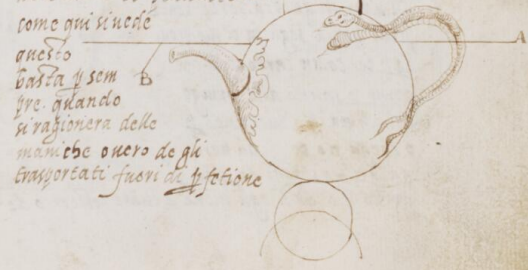 come qui si vede
questo
basta ꝑ sem
pre. quando
si ragionera delle
maniche overo de gli
trasportati fuori di ꝑfetione
B
A